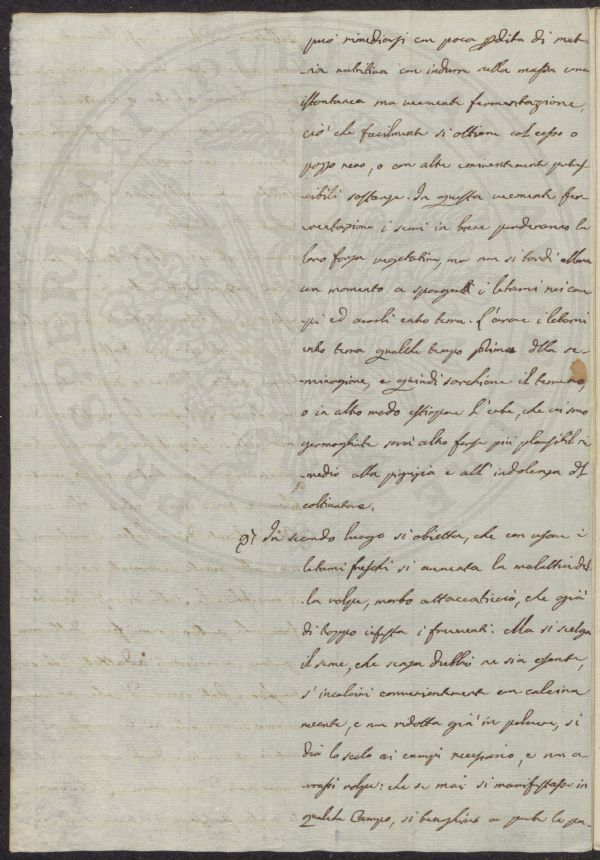 può rimediarsi con poca perdita di mate-
ria nutritiva con indurre nella massa una
istantanea ma veemente fermentazione,
ciò che facilmente si ottiene col cesso o
pozzo nero, o con altre eminentemente putres
cibili sostanze. In questa veemente fer-
mentazione i semi in breve perderanno la
loro forza vegetativa, ma non si tardi allora
un momento a spargere i letami nei cam
pi ed ararli entro terra. L'arare i letami
entro terra qualche tempo prima della se-
minagione, e quindi sarchiare il terreno,
o in altro modo estirpare l'erbe, che vi sono
germogliate sarà altro forse più plausibil ri
medio alla pigrizia e all'indolenza del
coltivatore.
In secondo luogo si obietta, che con usare i
letami freschi si aumenta la malattia del
la volpe, morbo attaccaticcio, che già
di troppo infesta i frumenti. Ma si scelga
il seme, che senza dubbio ne sia esente,
s'incalcini convenientemente con calcina
recente, e non ridotta già in polvere, si
dia lo scolo ai campi necessario, e non a
vrassi volpe: che se mai si manifestasse in
qualche Campo, si a parte la pa-